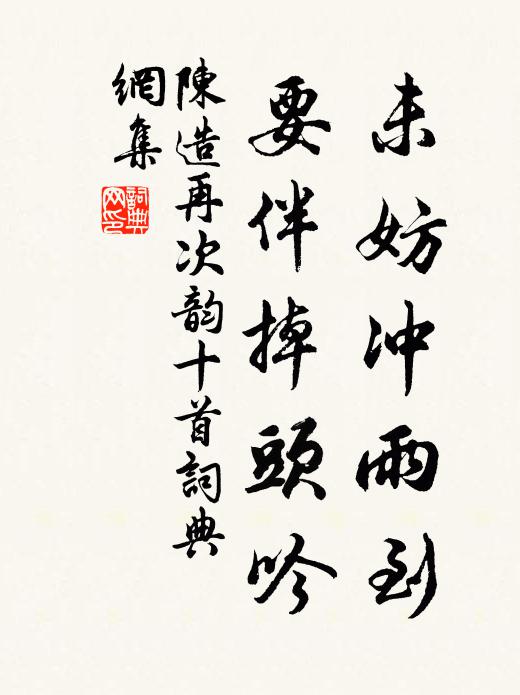 未妨冲雨到
要伴掉頭吟
陳造再次韵十首詞典
網集
詞典
网印